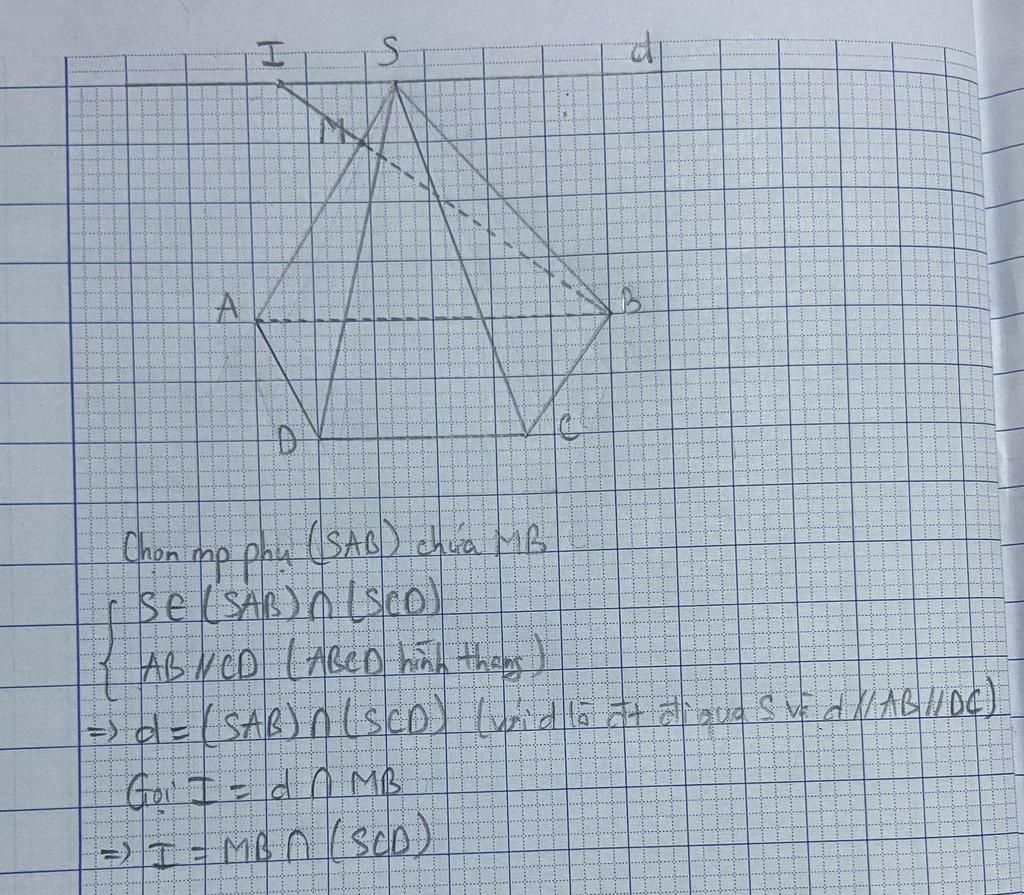 I S d
M
A B
D C
Chọn mp phụ (SAB) chứa MB
{ S∈(SAB)∩(SCD)
AB//CD (ABCD hình thang)
=> d=(SAB)∩(SCD) (với d là đt đi qua S và d//AB//DC)
Gọi I = d ∩ MB
=> I = MB∩(SCD)